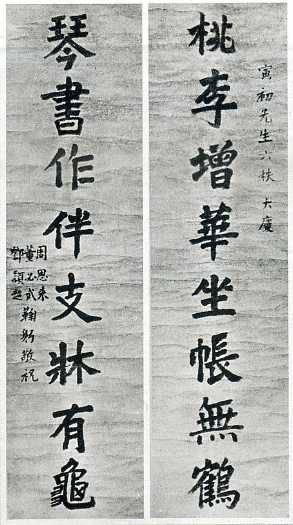 寅初先生六秩大慶
桃李增華坐帳無鶴
琴書作伴支牀有龜
周恩来
董必武
鄧穎超
鞠躬敬祝